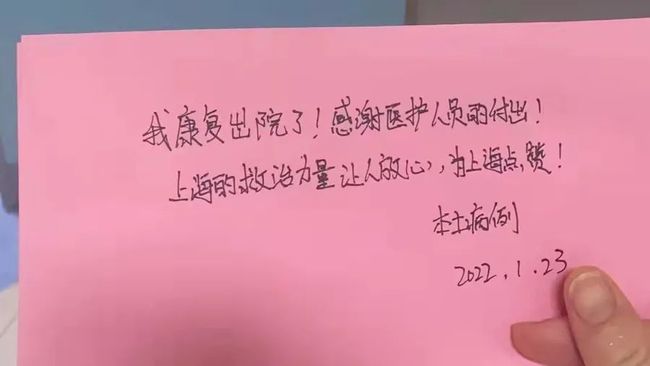 我康复出院了！感谢医护人员的付出！
上海的救治力量让人放心，为上海点赞！
本土病例
2022.1.23